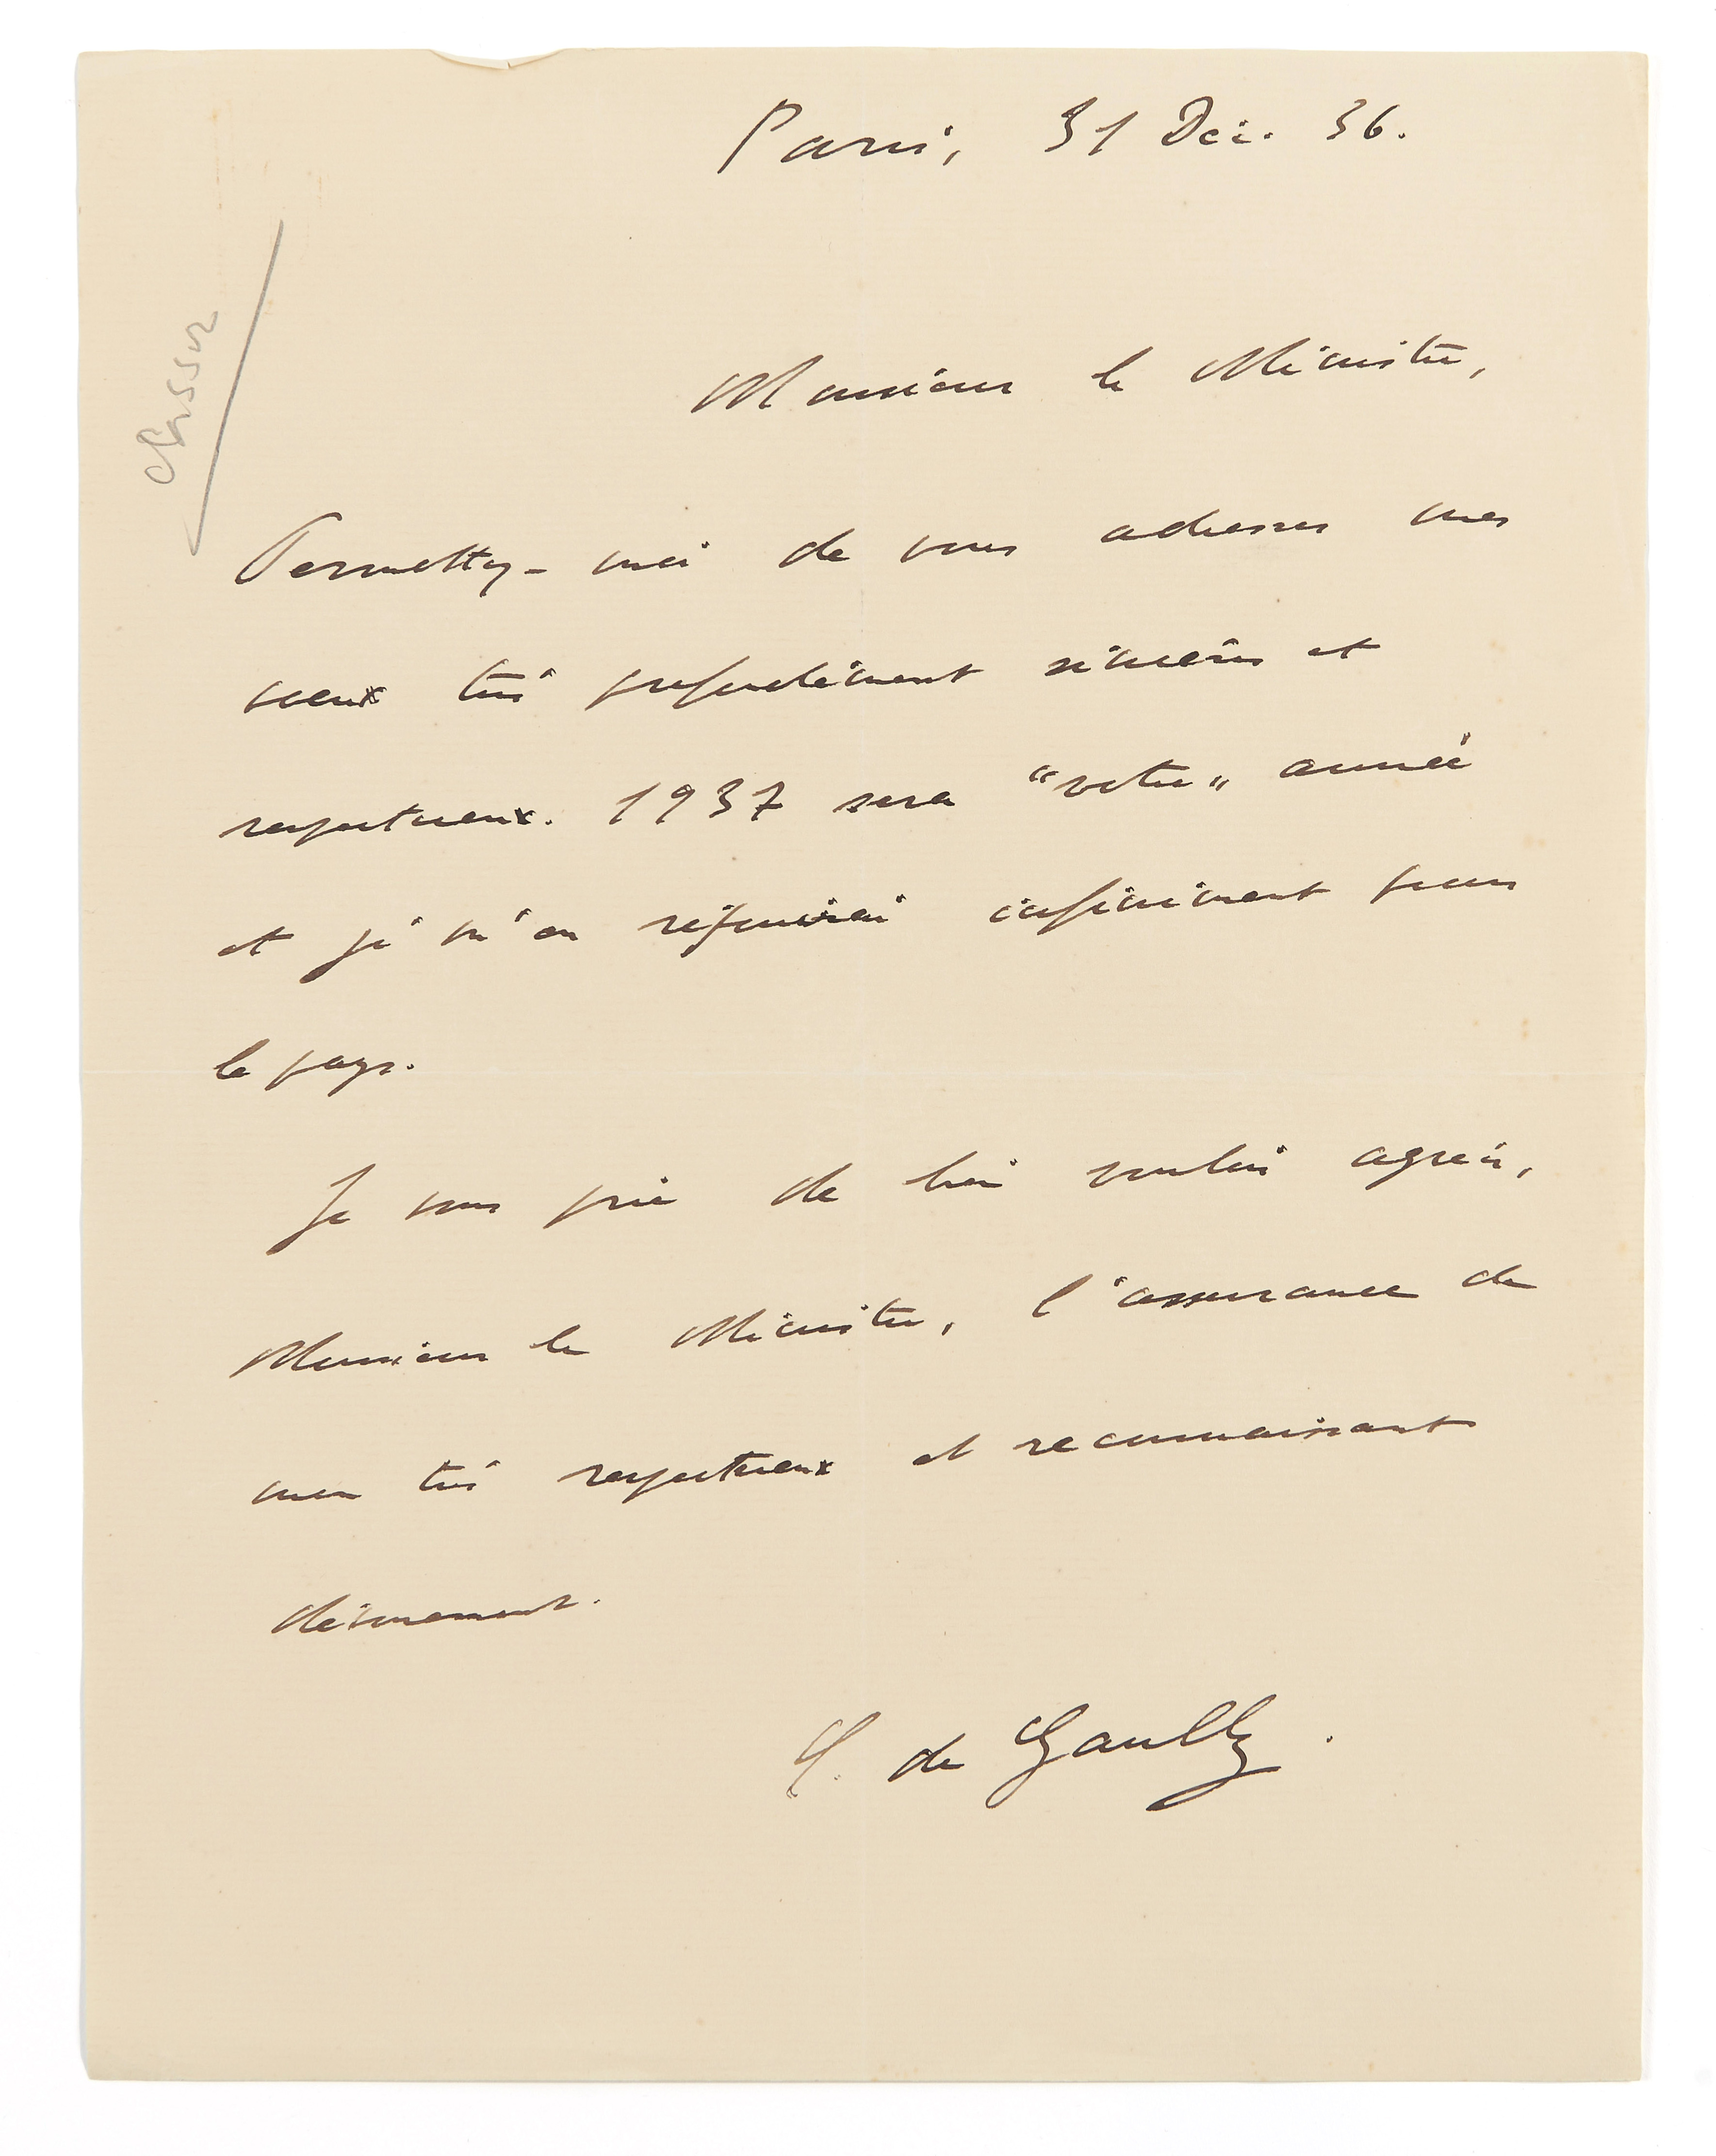 Paris, 31 Déc. 36.
classer
Monsieur le Ministre,
Permettez-moi de vous adresser mes
vœux très profondément sincères et
respectueux. 1937 sera "votre" année
et je m'en réjouirai infiniment pour
le pays.
Je vous prie de bien vouloir agréer,
Monsieur le Ministre, l'assurance de
mon très respectueux et reconnaissant
dévouement.
C. de Gaulle.